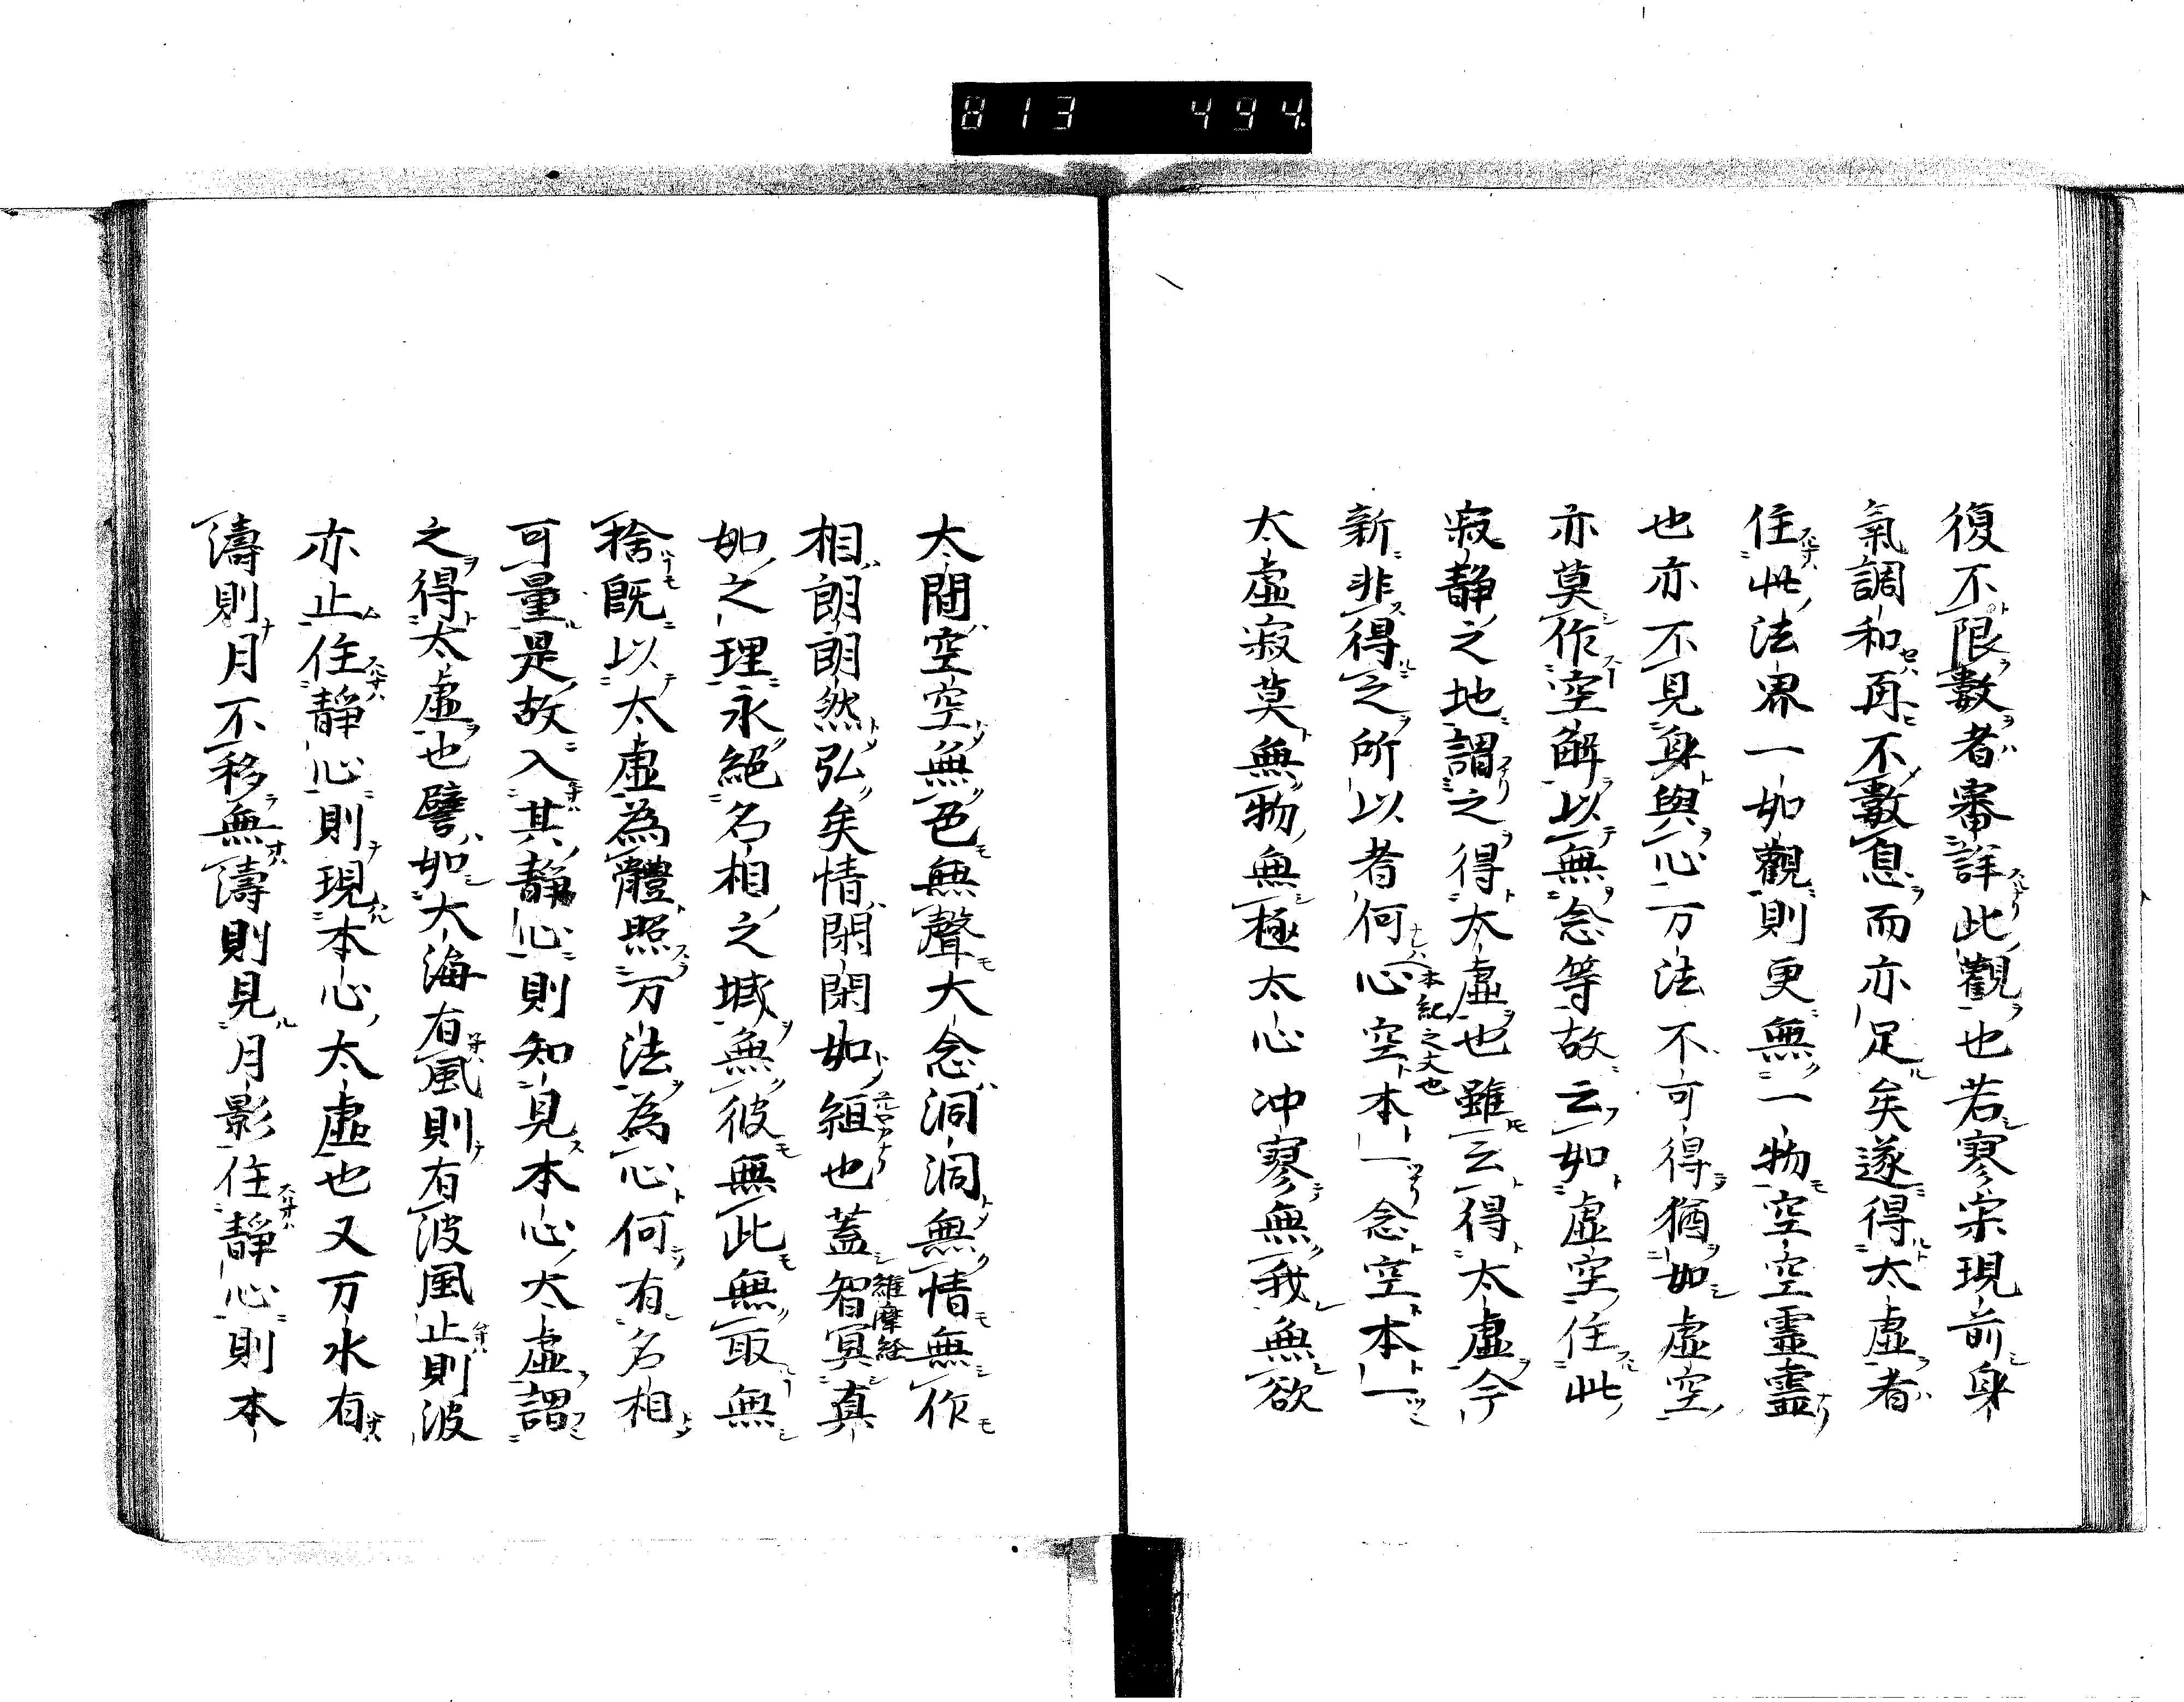 813 494
復不限數者審詳此觀也若寥寂現前身
氣調和再不數息而亦足矣遂得太虛者
住此法界一如觀則更無一物空空靈靈
也亦不見身與心万法不可得猶如虛空
亦莫作空解以無念等故云如虛空住此
寂靜之地謂之得太虛也雖云得太虛今
本紀之文也
新非得之所以者何心空本一念空本一
太虛寂莫無物無極太心冲寥無我無欲
太間空空無色無聲大念洞洞無情無作
相朗朗然弘矣情閑閑如絙也蓋智冥真
維摩経
如之理永絕名相之域無彼無此無取無
捨既以太虛為體照万法為心何有名相
可量是故入其靜心則知見本心太虛謂
之得太虛也譬如大海有風則有波風止則波
亦止住靜心則現本心太虛也又万水有
濤則月不移無濤則見月影住靜心則本